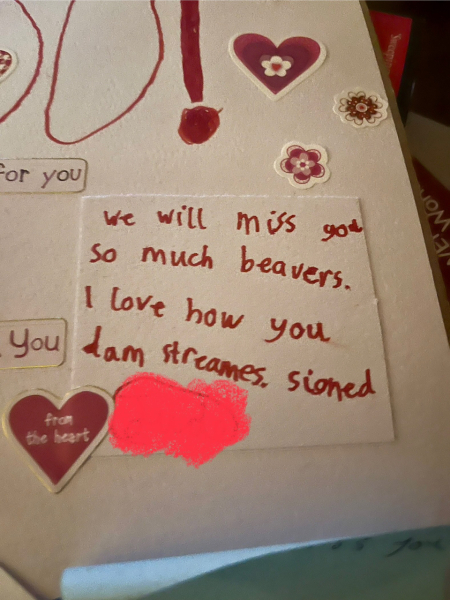 for you
we will miss you
so much beavers.
I love how you
dam streames. sioned
You
from
the heart